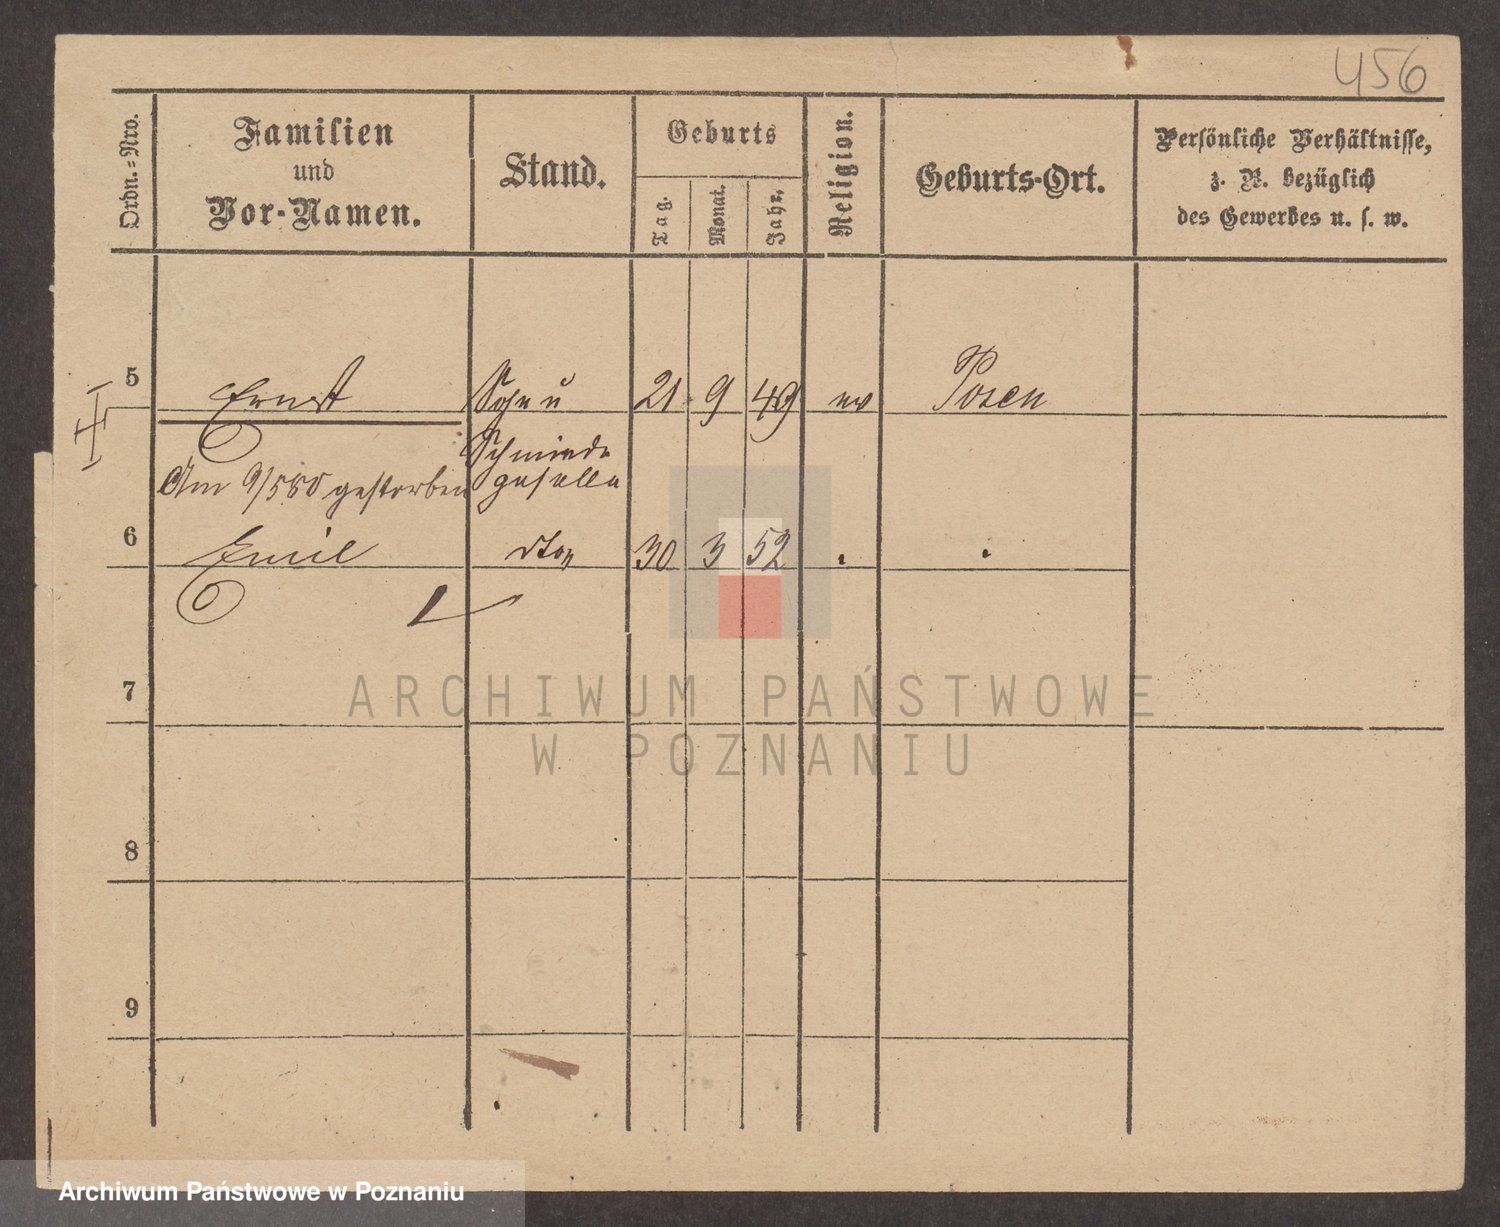 456
Ordn.=Nro.
Familien
und
Vor-Namen.
Stand.
Geburts
Tag.
Monat.
Jahr.
Religion.
Geburts-Ort.
Persönliche Verhältnisse,
z. B. bezüglich
des Gewerbes u. s. w.
5 Ernst Sohn u 21 9 49 ev Posen
Schmiede
geselle
Am 9/5 80 gestorben
6 Emil dto 30 3 52
7
8
9
ARCHIWUM PAŃSTWOWE
W POZNANIU
Archiwum Państwowe w Poznaniu